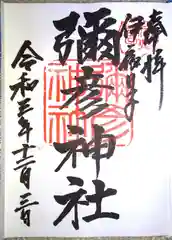 奉拝
伊夜日子
彌彦神社
令和三年十二月三日